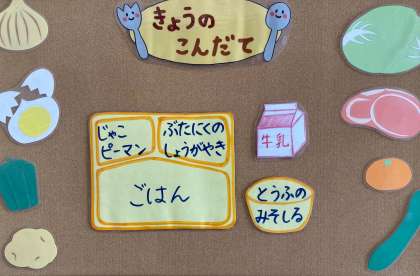 きょうの
こんだて
じゃこ
ピーマン
ぶたにくの
しょうがやき
ごはん
牛乳
とうふの
みそしる